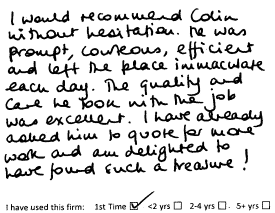 I would recommend Colin
without hesitation. He was
prompt, courteous, efficient
and left the place immaculate
each day. The quality and
care he took with the job
was excellent. I have already
asked him to quote for more
work and am delighted to
have found such a treasure!
I have used this firm: 1st Time ☑ <2 yrs ☐ 2-4 yrs ☐ 5+ yrs ☐